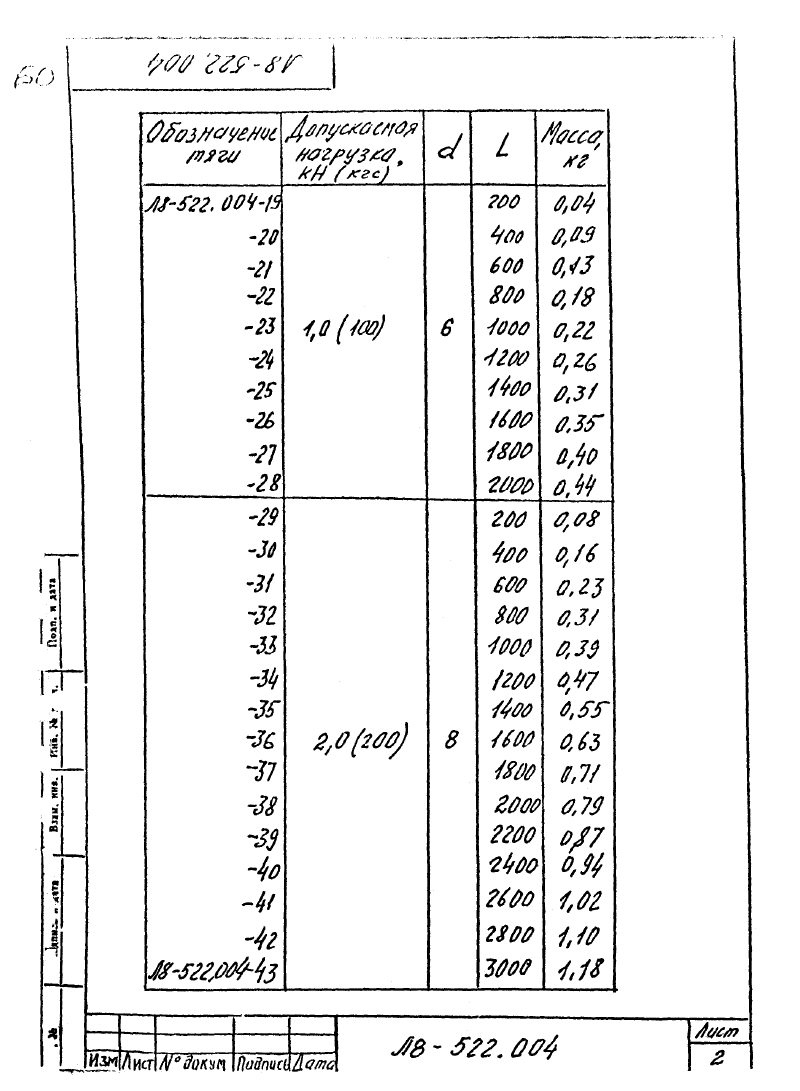 Л8-522.004
60
Обозначение тяги | Допускаемая нагрузка, кН (кгс) | d | L | Масса, кг
Л8-522.004-19 200 0,04
-20 400 0,09
-21 600 0,13
-22 800 0,18
-23 1,0 (100) 6 1000 0,22
-24 1200 0,26
-25 1400 0,31
-26 1600 0.35
-27 1800 0,40
-28 2000 0,44
-29 200 0,08
-30 400 0,16
-31 600 0,23
-32 800 0,31
-33 1000 0,39
-34 1200 0,47
-35 1400 0,55
-36 2,0 (200) 8 1600 0,63
-37 1800 0,71
-38 2000 0,79
-39 2200 0,87
-40 2400 0,94
-41 2600 1,02
-42 2800 1,10
Л8-522.004-43 3000 1,18
Подп. и дата
Инв. №
Взам. инв.
и дата
№
Изм Лист № докум Подпись Дата
Л8-522.004
Лист
2